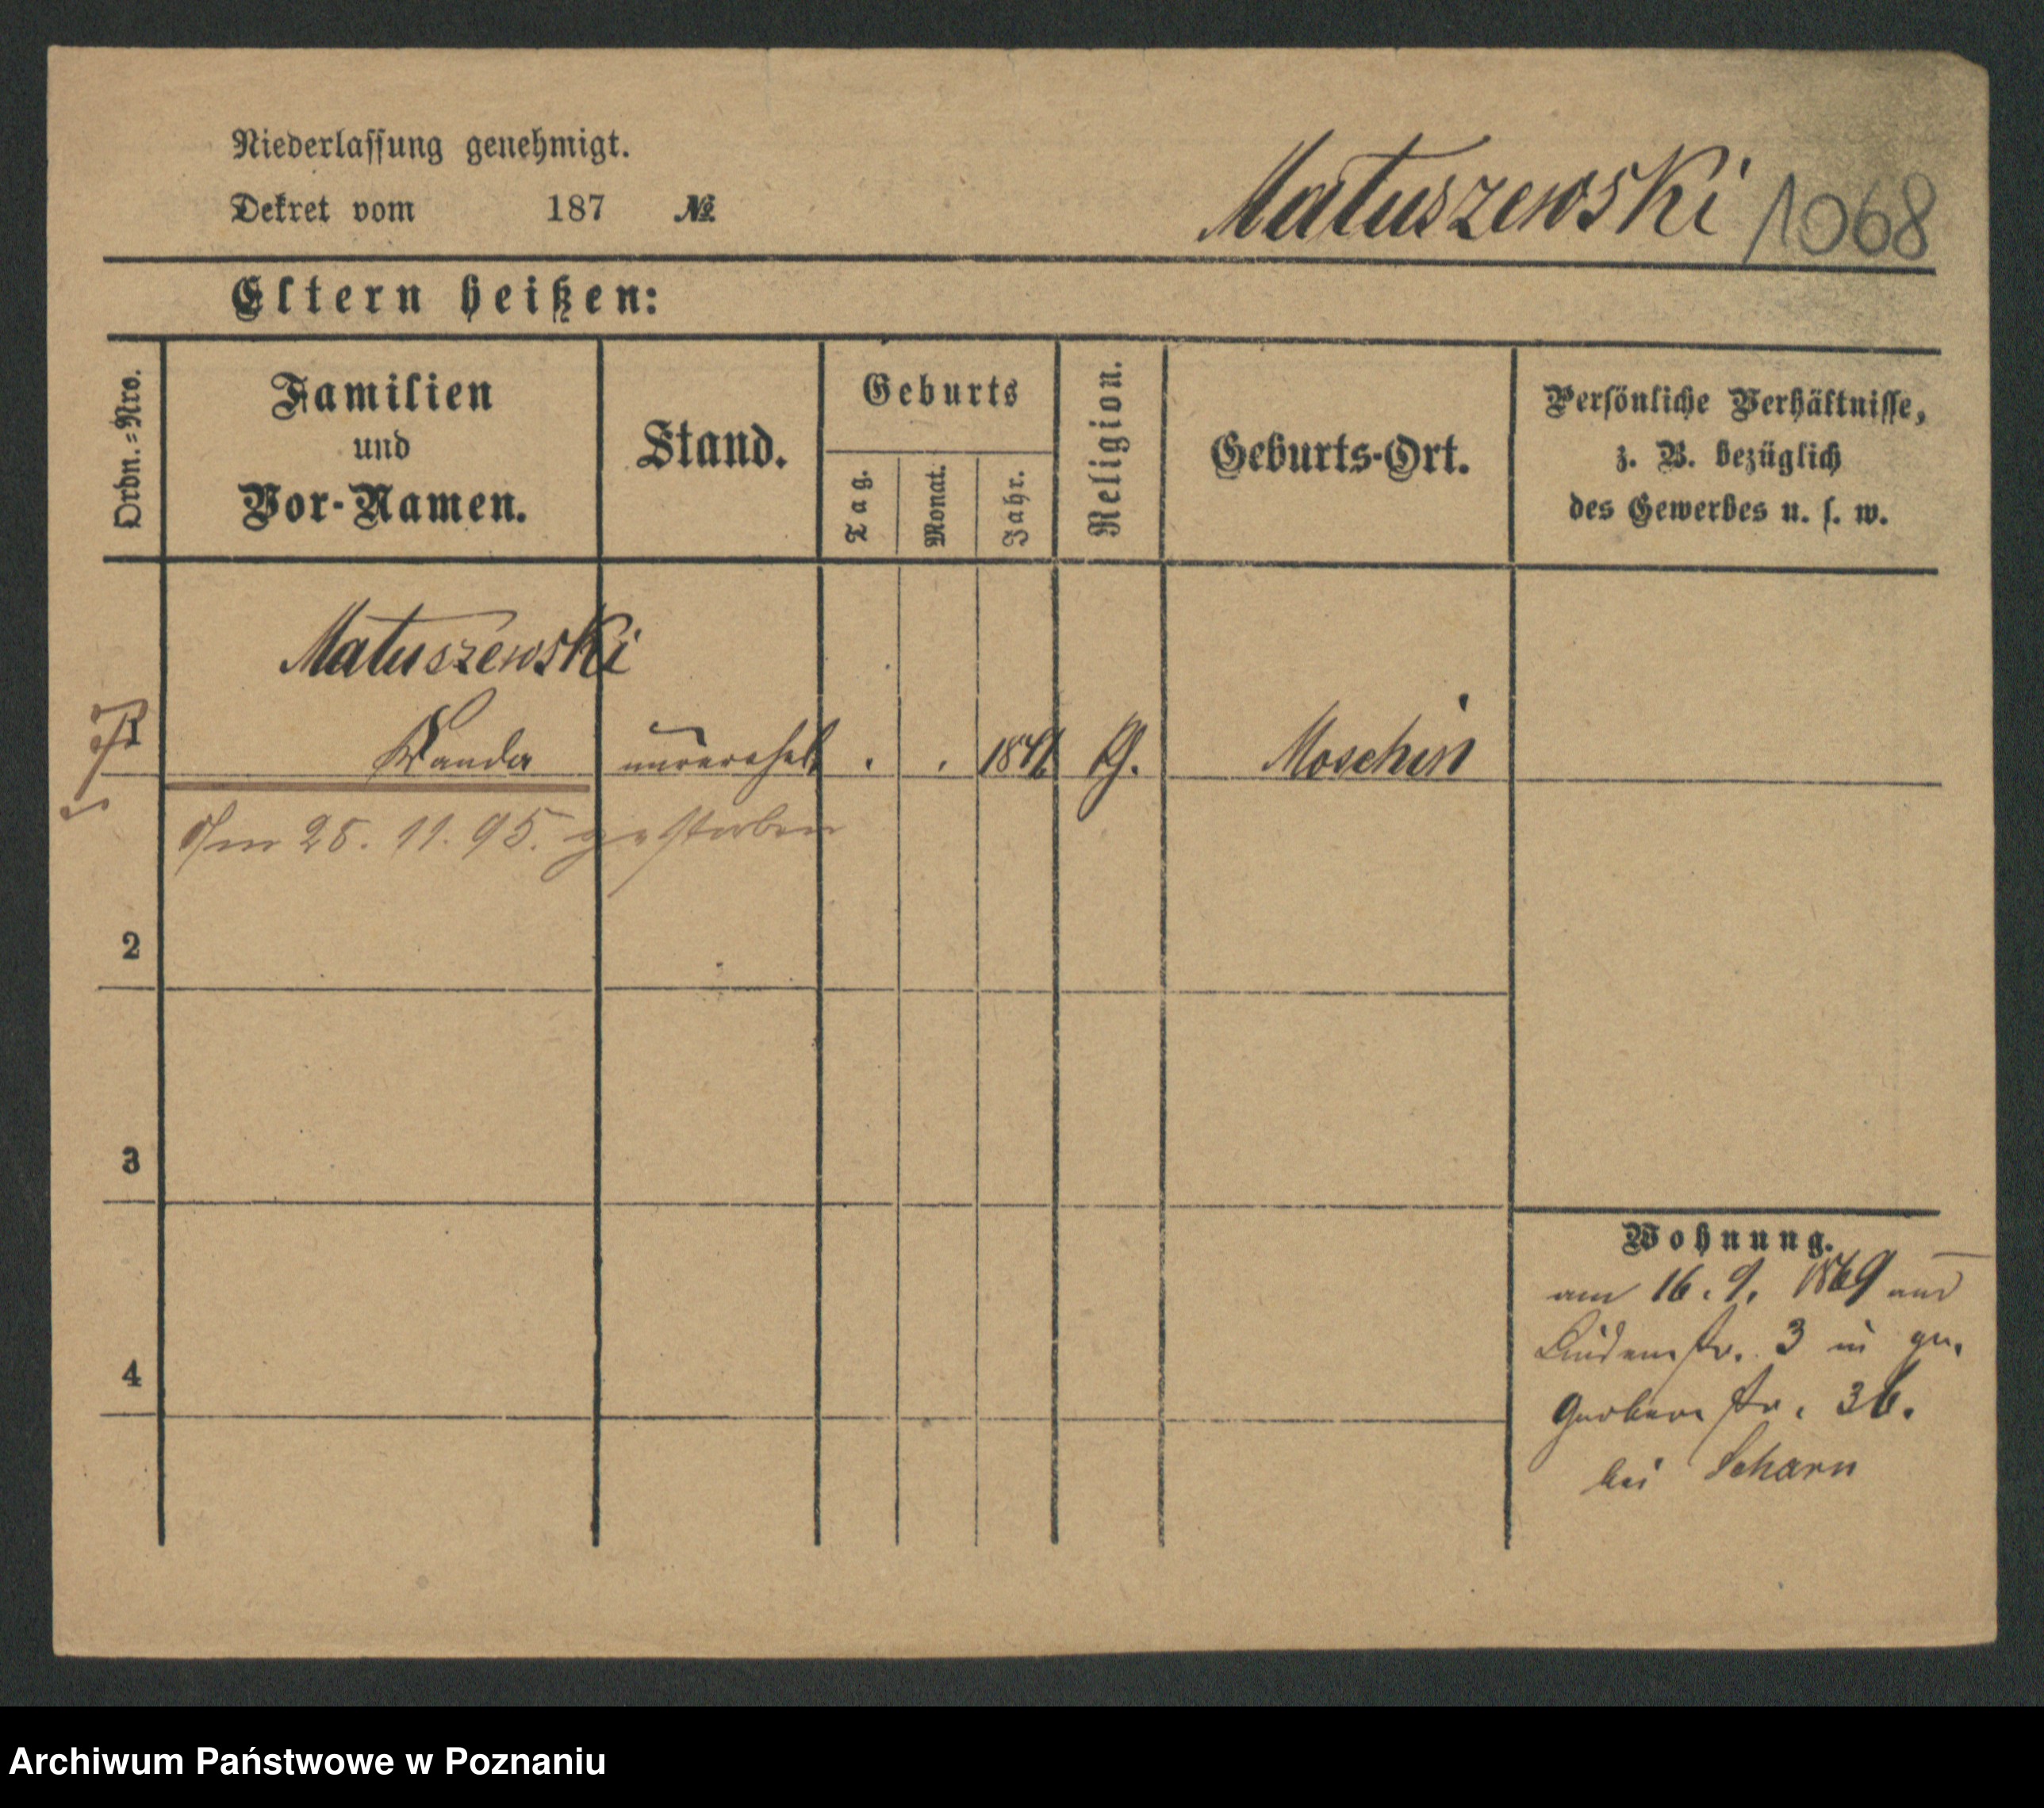 Niederlassung genehmigt.
Dekret vom 187 №
Matuszewski 1068
Eltern heißen:
Ordn.=Nro.
Familien
und
Vor-Namen.
Stand.
Geburts
Tag.
Monat.
Jahr.
Religion.
Geburts-Ort.
Persönliche Verhältnisse,
z. B. bezüglich
des Gewerbes u. s. w.
Matuszewski
1 Wanda unverehel. Moschin
gestorben
2
3
4
Wohnung.
am 16. 9. 1869 aus
Lindenstr. 3 in
Gerberstr. 36.
bei Scharn
Archiwum Państwowe w Poznaniu